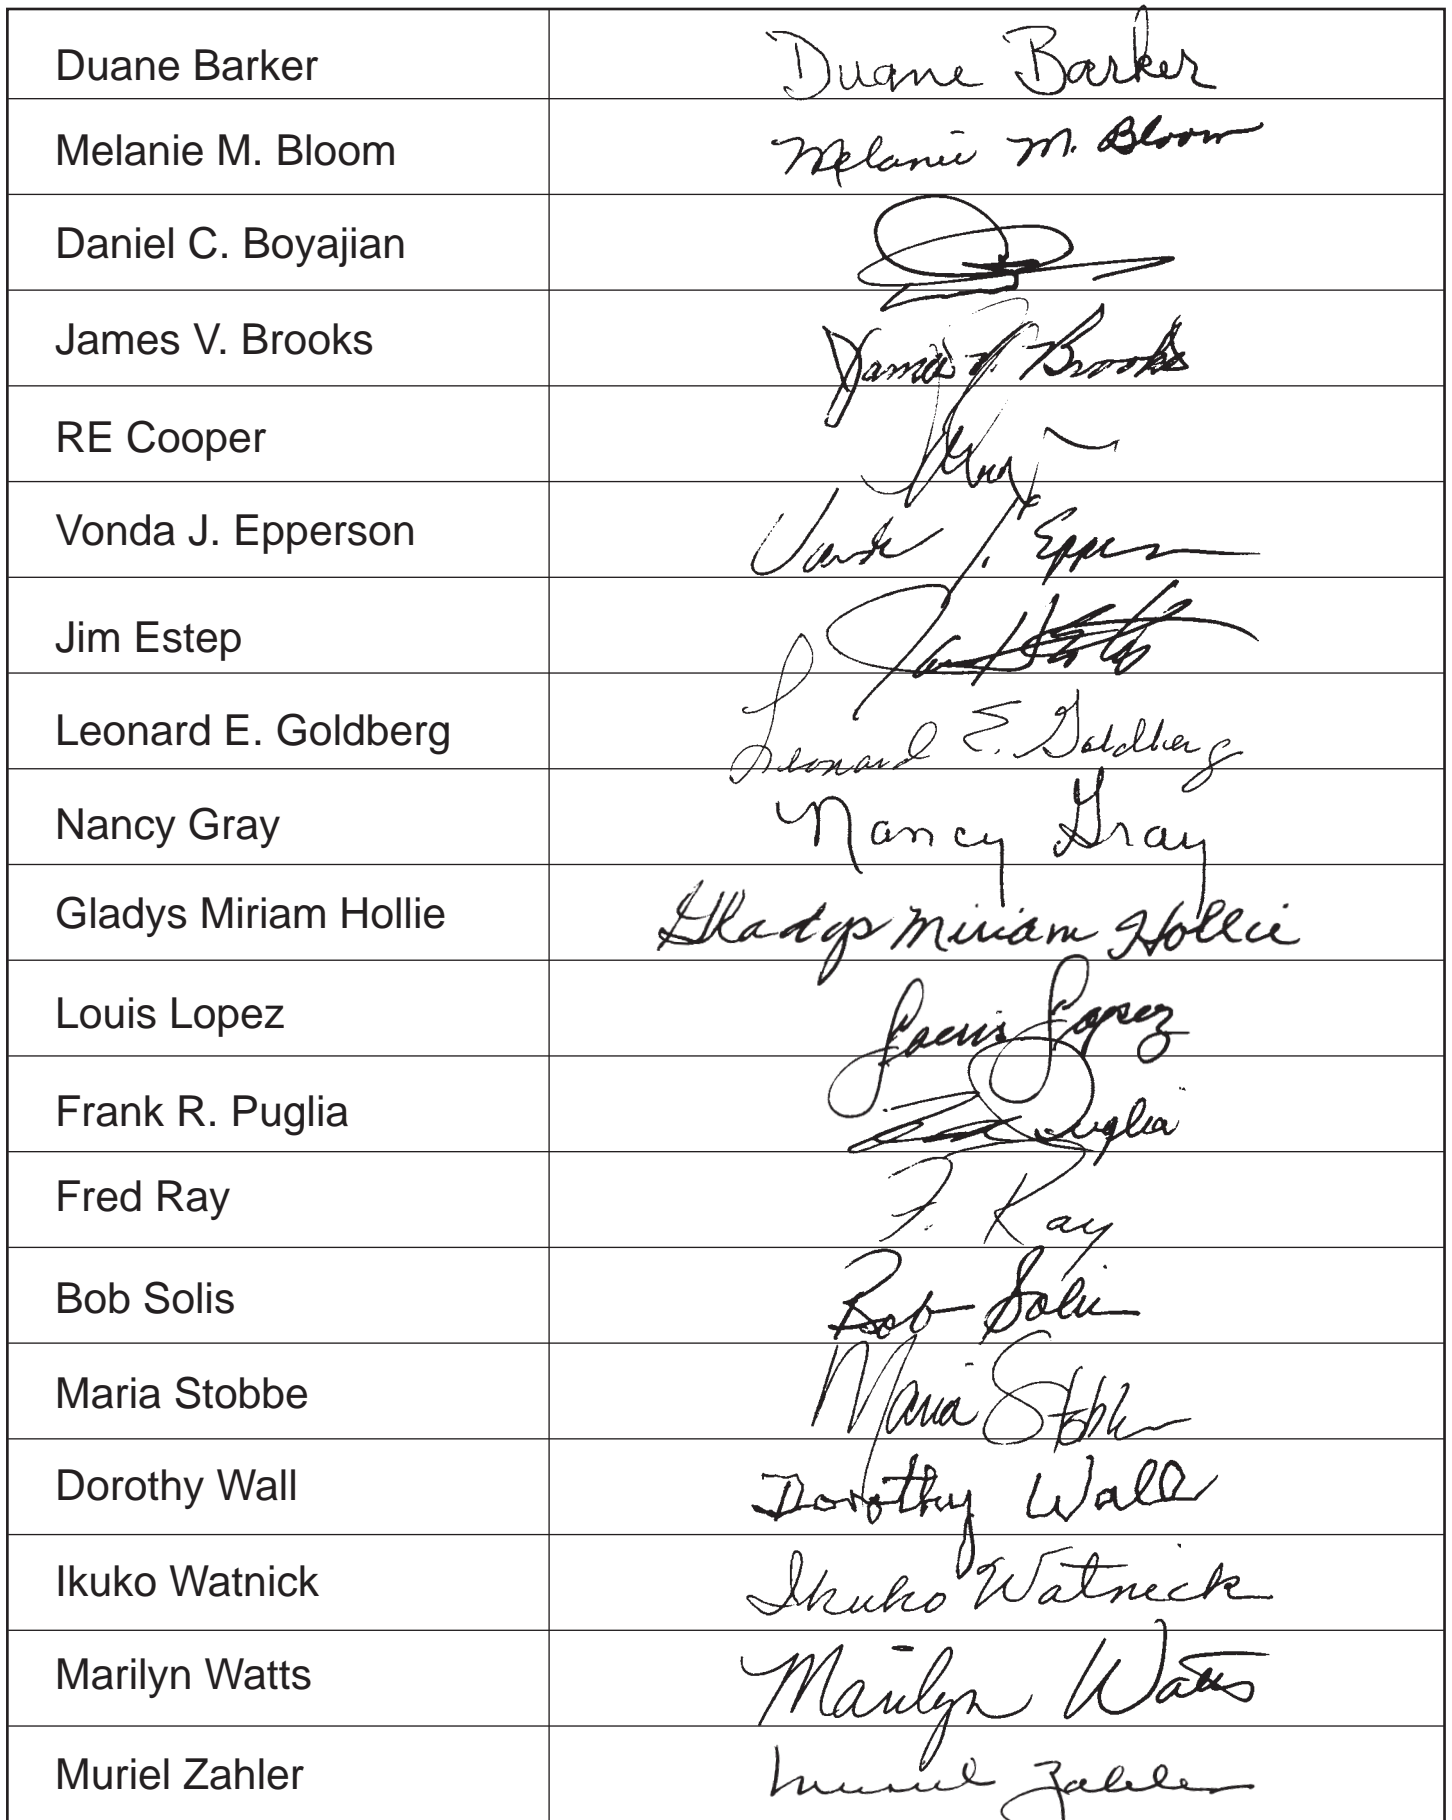 Duane Barker Duane Barker
Melanie M. Bloom Melanie M. Bloom
Daniel C. Boyajian
James V. Brooks James V. Brooks
RE Cooper
Vonda J. Epperson Vonda J. Epperson
Jim Estep
Leonard E. Goldberg Leonard E. Goldberg
Nancy Gray Nancy Gray
Gladys Miriam Hollie Gladys Miriam Hollie
Louis Lopez Louis Lopez
Frank R. Puglia Puglia
Fred Ray F. Ray
Bob Solis Bob Solis
Maria Stobbe Maria Stobbe
Dorothy Wall Dorothy Wall
Ikuko Watnick Ikuko Watnick
Marilyn Watts Marilyn Watts
Muriel Zahler Muriel Zahler